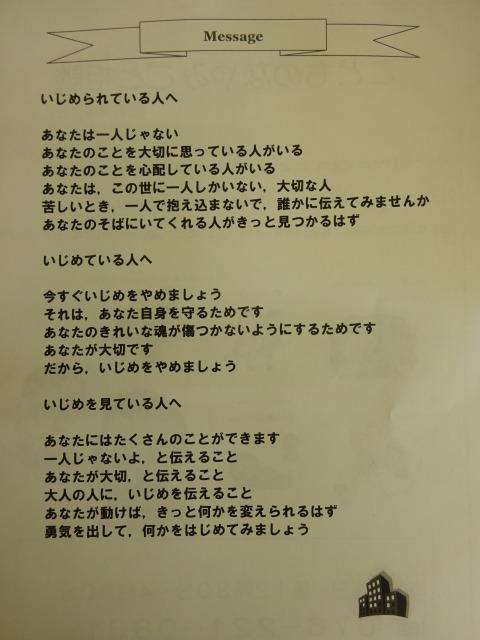 Message
いじめられている人へ
あなたは一人じゃない
あなたのことを大切に思っている人がいる
あなたのことを心配している人がいる
あなたは，この世に一人しかいない，大切な人
苦しいとき，一人で抱え込まないで，誰かに伝えてみませんか
あなたのそばにいてくれる人がきっと見つかるはず
いじめている人へ
今すぐいじめをやめましょう
それは，あなた自身を守るためです
あなたのきれいな魂が傷つかないようにするためです
あなたが大切です
だから，いじめをやめましょう
いじめを見ている人へ
あなたにはたくさんのことができます
一人じゃないよ，と伝えること
あなたが大切，と伝えること
大人の人に，いじめを伝えること
あなたが動けば，きっと何かを変えられるはず
勇気を出して，何かをはじめてみましょう